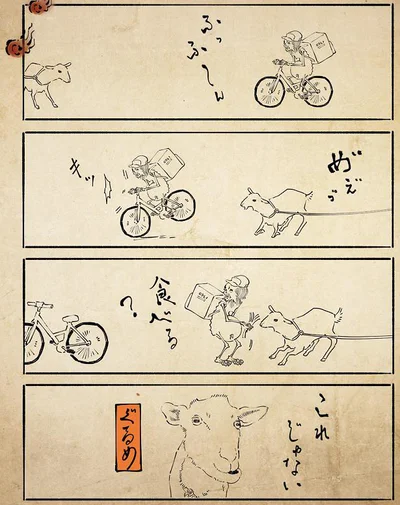 ふっ
ふ〜ん
め゛ぇっ
キッ
食べる
?
これ
じゃない
ぐるめ